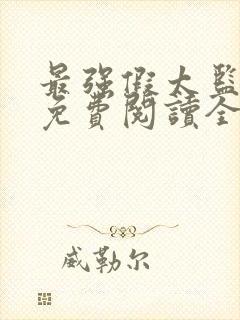 最強假太監
免費閱讀全
威勒尔